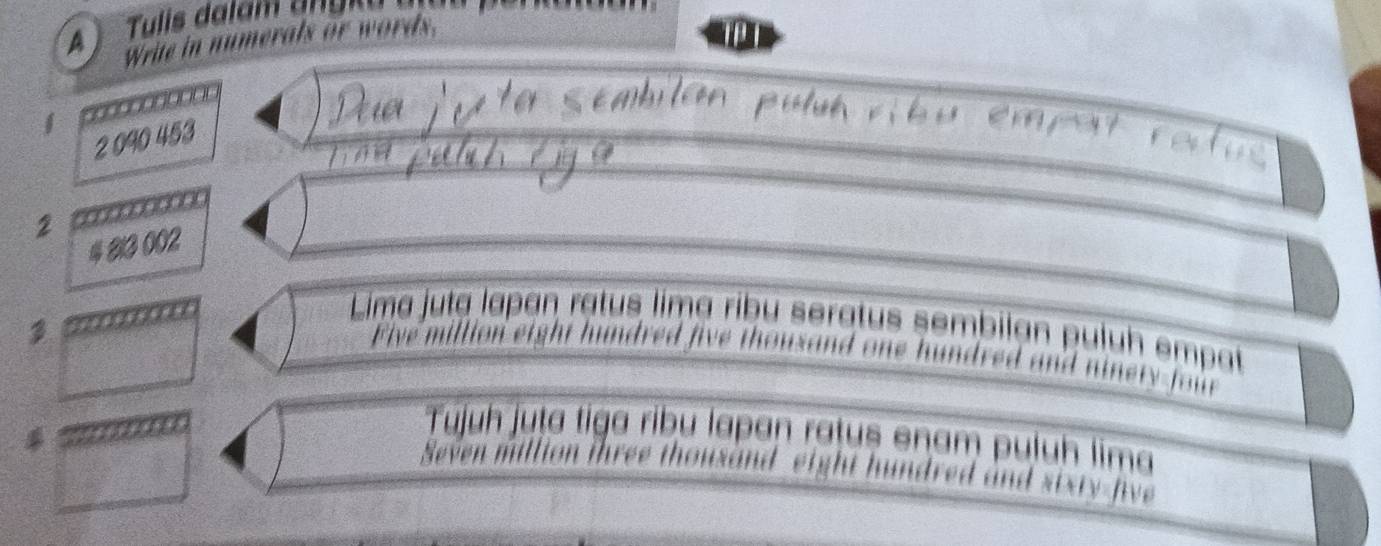 A Tulis dalam
Write in numerals or words.
TP1
1
2 090 453
Dua juta sembilan puluh ribu empat ratus
lima puluh tiga
2
4 813 002
3
Lima juta lapan ratus lima ribu seratus sembilan puluh empat
Five million eight hundred five thousand one hundred and ninety-four
4
Tujuh juta tiga ribu lapan ratus enam puluh lima
Seven million three thousand eight hundred and sixty-five